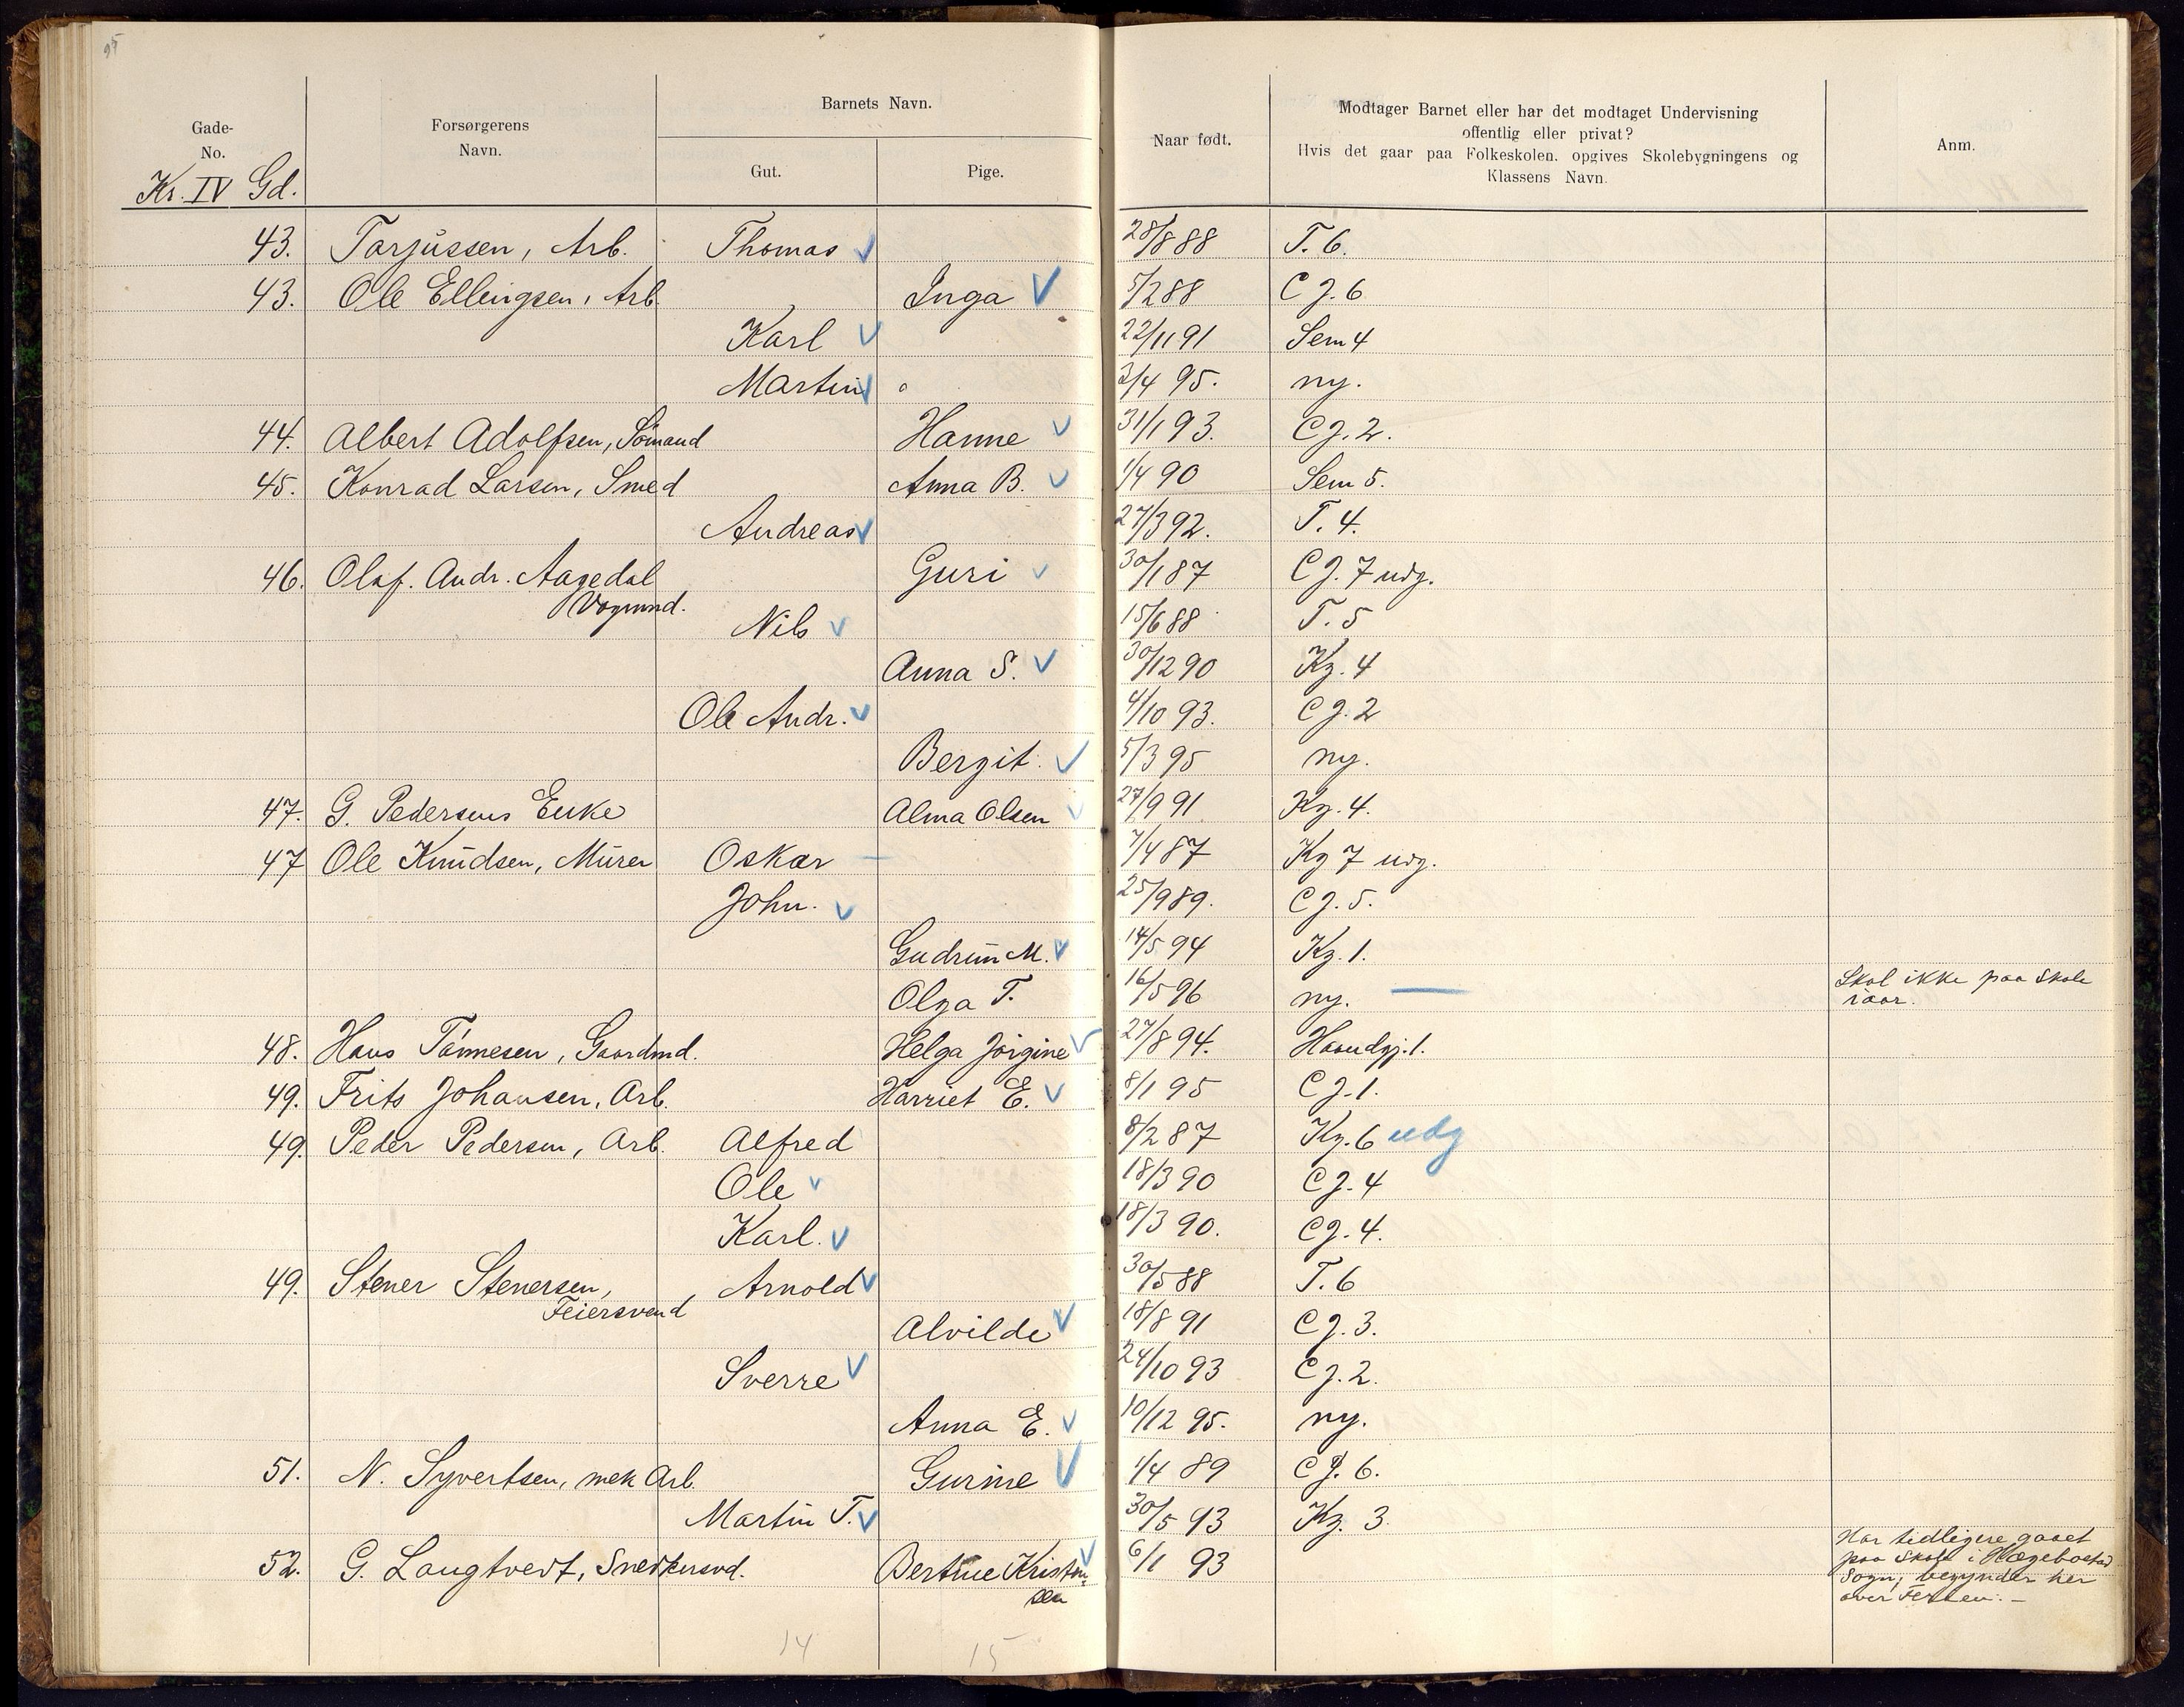 95
Gade-
No.
Kr. IV Gd.
Forsørgerens
Navn.
Barnets Navn.
Gut.
Pige.
Naar født.
Modtager Barnet eller har det modtaget Undervisning
offentlig eller privat?
Hvis det gaar paa Folkeskolen, opgives Skolebygningens og
Klassens Navn.
Anm.
43. Tarjussen, Arb. Thomas 28/8 88 T. 6.
43. Ole Ellingsen, Arb. Inga 5/2 88 C J. 6
Karl 22/11 91 Sem 4
Martin 3/4 95. ny.
44. Albert Adolfsen, Sömand Hanne 31/1 93. C J. 2.
45. Konrad Larsen, Smed Anna B. 1/4 90 Sem 5.
Andreas 27/3 92. T. 4.
46. Olaf. Andr. Aagedal Guri 30/1 87 C J. 7 udg.
Vognmd.
Nils 15/6 88 T. 5
Anna S. 30/12 90 Kg. 4
Ole Andr. 4/10 93. C J. 2
Bergit. 5/3 95 ny.
47. G. Pedersens Enke Alma Olsen 27/9 91 Kg. 4.
47 Ole Knudsen, Murer Oskar 7/4 87 Kg 7 udg.
John. 25/9 89. C J. 5.
Gudrun M. 14/5 94 Kg. 1.
Olga T. 16/5 96 ny. Skal ikke paa Skole
iaar.
48. Hans Tönnesen, Gaardmd. Helga Jörgine 27/8 94. 1.
49. Frits Johansen, Arb. Harriet E. 8/1 95 C J. 1.
49. Peder Pedersen, Arb. Alfred 8/2 87 Kg. 6 udg
Ole 18/3 90 C J. 4
Karl. 18/3 90. C J. 4.
49. Stener Stenersen, Arnold 30/5 88 T. 6
Feiersvend
Alvilde 18/8 91 C J. 3.
Sverre 24/10 93 C J. 2.
Anna E. 10/12 95. ny.
51. N. Syvertsen, mek Arb. Gurine 1/4 89 C J. 6.
Martin T. 30/5 93 Kg. 3
52. G. Langtvedt, Snedkersvd. Bertine Kristen- 6/1 93 Har tidligere gaaet
sen
paa Skole i Hægebostad
Sogn; begynder her
over Ferien. –
14 15